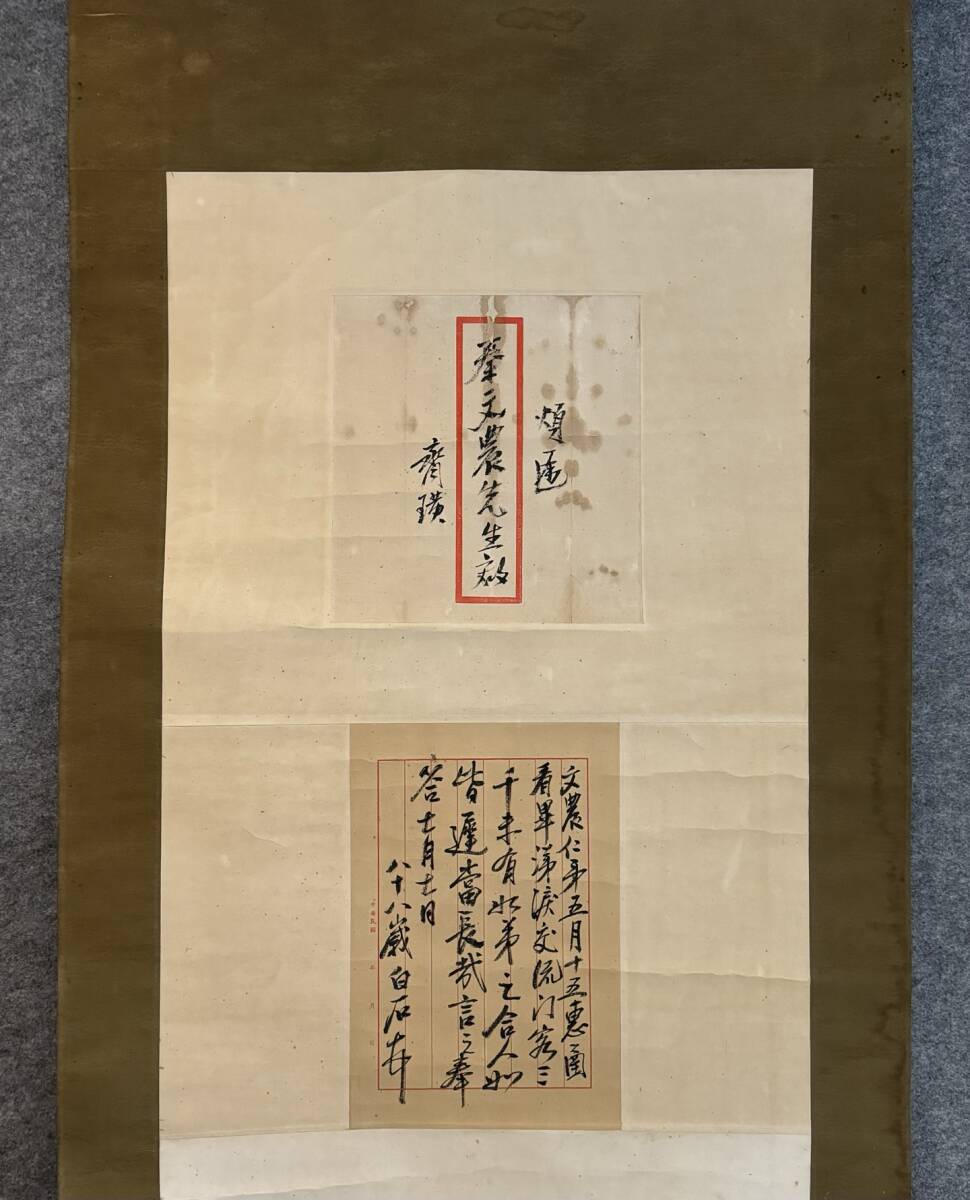 煩遞
文農先生啟
齊璜
文農仁弟五月十五惠函
看畢涕淚交流门客三
千未有如弟之合人如
皆遲當長哉言之奉
答月日
八十八歲白石
中華民國 年 月 日